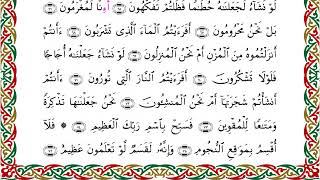 لَوْ نَشَآءُ لَجَعَلْنَٰهُ حُطَٰمًا فَظَلْتُمْ تَفَكَّهُونَ ۝٦٥ إِنَّا لَمُغْرَمُونَ ۝٦٦
بَلْ نَحْنُ مَحْرُومُونَ ۝٦٧ أَفَرَءَيْتُمُ ٱلْمَآءَ ٱلَّذِى تَشْرَبُونَ ۝٦٨ ءَأَنتُمْ
أَنزَلْتُمُوهُ مِنَ ٱلْمُزْنِ أَمْ نَحْنُ ٱلْمُنزِلُونَ ۝٦٩ لَوْ نَشَآءُ جَعَلْنَٰهُ أُجَاجًا
فَلَوْلَا تَشْكُرُونَ ۝٧٠ أَفَرَءَيْتُمُ ٱلنَّارَ ٱلَّتِى تُورُونَ ۝٧١ ءَأَنتُمْ
أَنشَأْتُمْ شَجَرَتَهَآ أَمْ نَحْنُ ٱلْمُنشِـُٔونَ ۝٧٢ نَحْنُ جَعَلْنَٰهَا تَذْكِرَةً
وَمَتَٰعًا لِّلْمُقْوِينَ ۝٧٣ فَسَبِّحْ بِٱسْمِ رَبِّكَ ٱلْعَظِيمِ ۝٧٤ ۞ فَلَآ
أُقْسِمُ بِمَوَٰقِعِ ٱلنُّجُومِ ۝٧٥ وَإِنَّهُۥ لَقَسَمٌ لَّوْ تَعْلَمُونَ عَظِيمٌ ۝٧٦